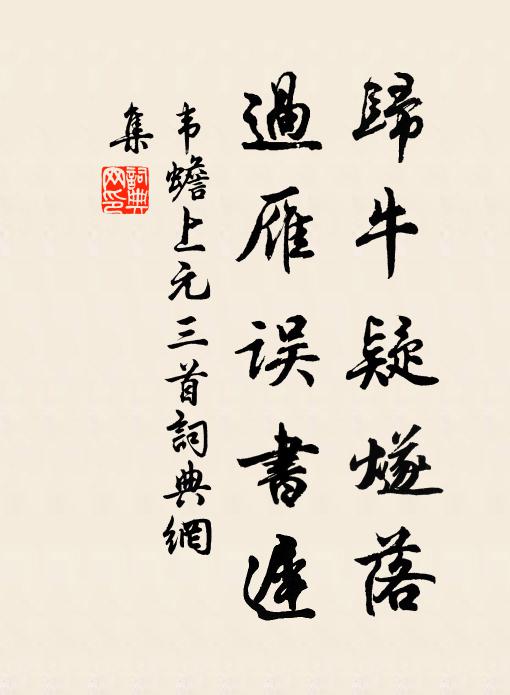 歸牛疑燧落
過雁误書遲
韦蟾上元三首詞典網
集
詞典
网印